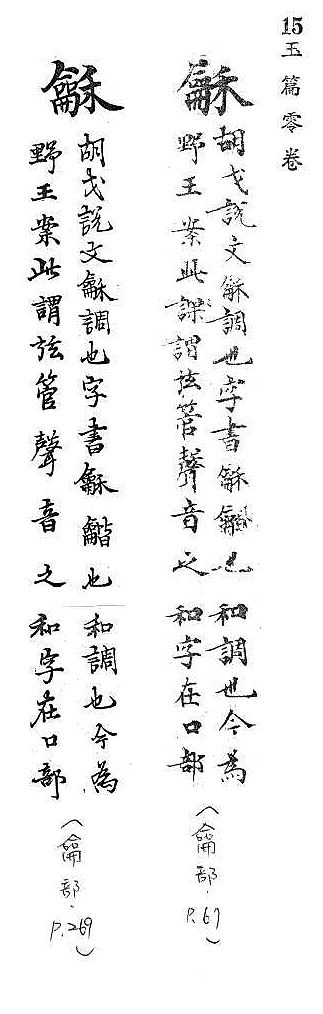 15
玉篇零卷
龢
胡戈說文龢調也字書龢龤也
野王案此課謂弦管聲音之
和調也今為
和字在口部
(龠部.P.67)
龢
胡戈說文龢調也字書龢龤也
野王案此謂弦管聲音之
和調也今為
和字在口部
(龠部.P.269)